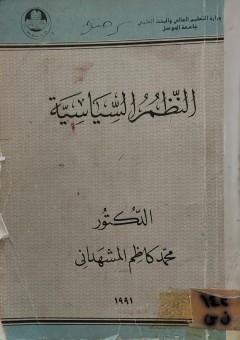 وزارة التعليم العالي والبحث العلمي
جامعة الموصل
النُّظُمُ السِّيَاسِيَّة
الدكتور
محمد كاظم المشهداني
١٩٩١